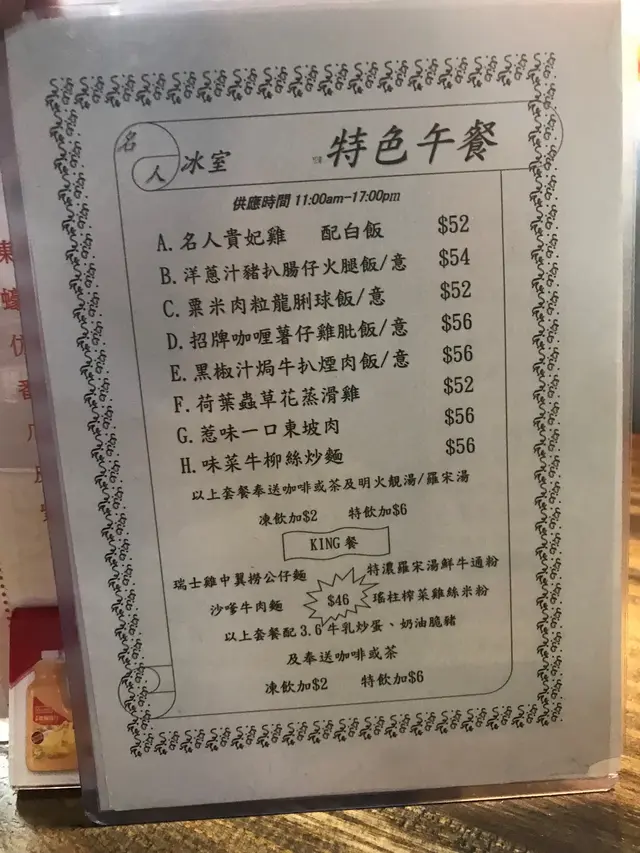 名人冰室 特色午餐
供應時間 11:00am-17:00pm
A. 名人貴妃雞 配白飯 $52
B. 洋蔥汁豬扒腸仔火腿飯/意 $54
C. 粟米肉粒龍脷球飯/意 $52
D. 招牌咖喱薯仔雞肶飯/意 $56
E. 黑椒汁焗牛扒煙肉飯/意 $56
F. 荷葉蟲草花蒸滑雞 $52
G. 惹味一口東坡肉 $56
H. 味菜牛柳絲炒麵 $56
以上套餐奉送咖啡或茶及明火靚湯/羅宋湯
凍飲加$2 特飲加$6
KING 餐
瑞士雞中翼撈公仔麵 特濃羅宋湯鮮牛通粉
沙嗲牛肉麵 $46 瑤柱榨菜雞絲米粉
以上套餐配 3.6 牛乳炒蛋、奶油脆豬
及奉送咖啡或茶
凍飲加$2 特飲加$6